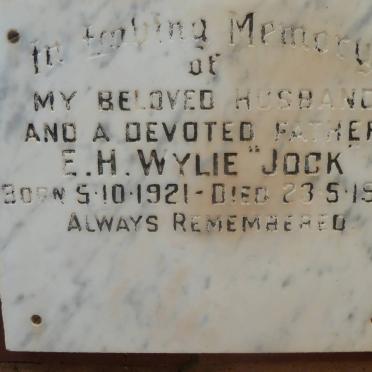 In Loving Memory
of
MY BELOVED HUSBAND
AND A DEVOTED FATHER
E.H. WYLIE "JOCK
BORN 5·10·1921 - DIED 23·5·19
ALWAYS REMEMBERED